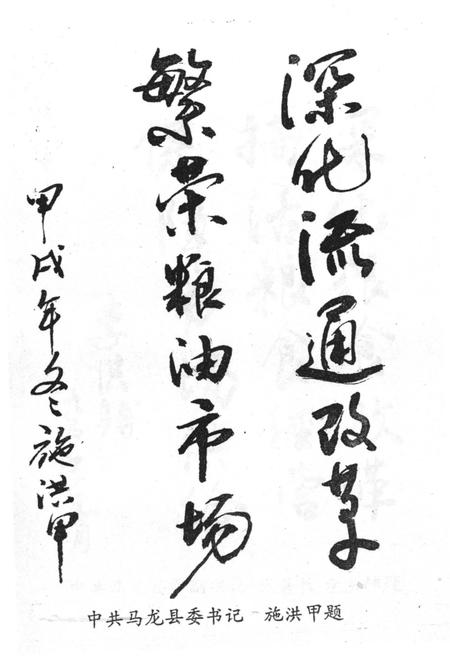 深化流通改革
繁荣粮油市场
甲戌年冬施洪甲
中共马龙县委书记 施洪甲题